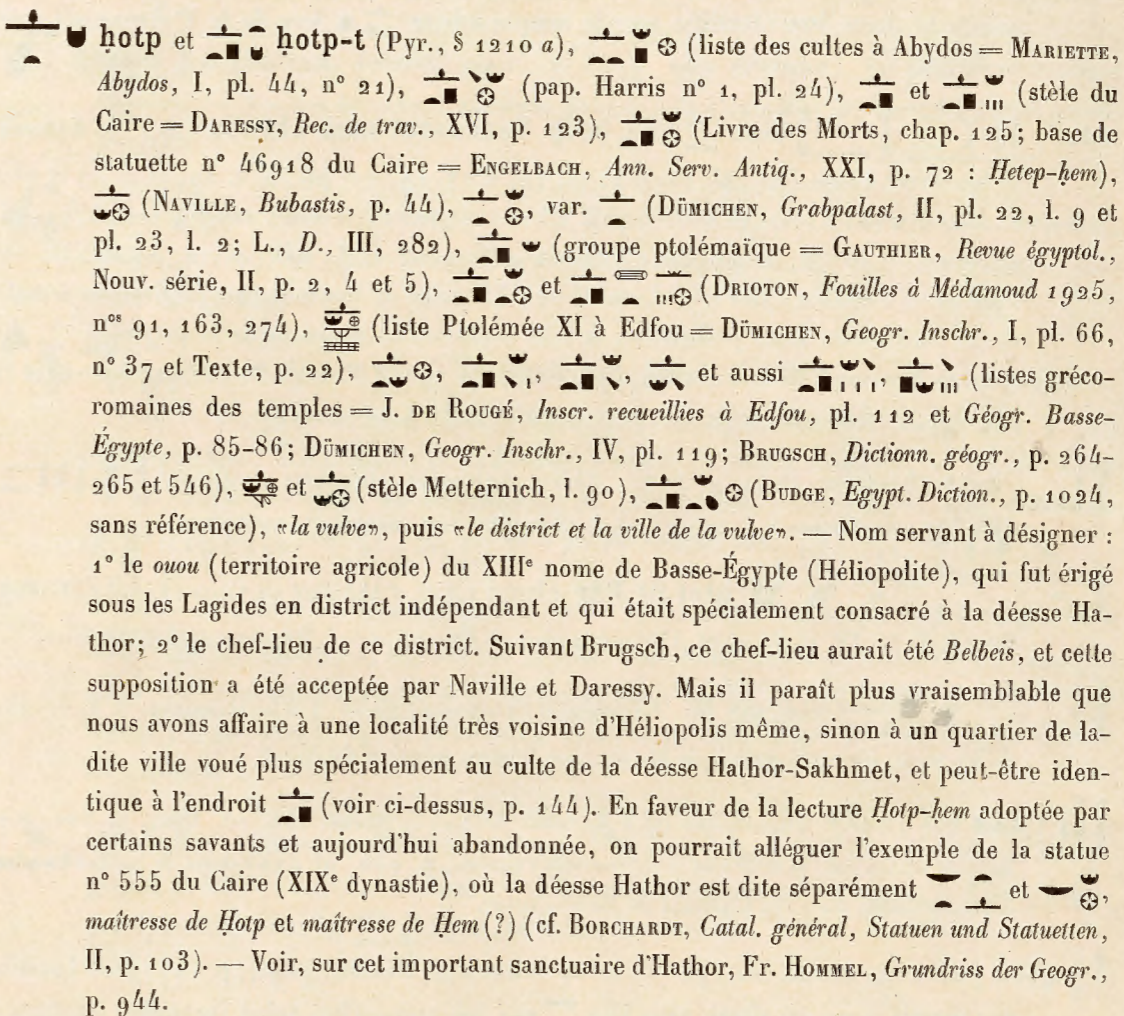 ḥotp et ḥotp-t (Pyr., § 1210 a), (liste des cultes à Abydos = MARIETTE,
Abydos, I, pl. 44, n° 21), (pap. Harris n° 1, pl. 24), et (stèle du
Caire = DARESSY, Rec. de trav., XVI, p. 123), (Livre des Morts, chap. 125; base de
statuette n° 46918 du Caire = ENGELBACH, Ann. Serv. Antiq., XXI, p. 72 : Ḥetep-ḥem),
(NAVILLE, Bubastis, p. 44), , var. (DÜMICHEN, Grabpalast, II, pl. 22, l. 9 et
pl. 23, l. 2; L., D., III, 282), (groupe ptolémaïque = GAUTHIER, Revue égyptol.,
Nouv. série, II, p. 2, 4 et 5), et (DRIOTON, Fouilles à Médamoud 1925,
nos 91, 163, 274), (liste Ptolémée XI à Edfou = DÜMICHEN, Geogr. Inschr., I, pl. 66,
n° 37 et Texte, p. 22), , , , et aussi , (listes gréco-
romaines des temples = J. DE ROUGÉ, Inscr. recueillies à Edfou, pl. 112 et Géogr. Basse-
Égypte, p. 85-86; DÜMICHEN, Geogr. Inschr., IV, pl. 119; BRUGSCH, Dictionn. géogr., p. 264-
265 et 546), et (stèle Metternich, l. 90), (BUDGE, Egypt. Diction., p. 1024,
sans référence), «la vulve», puis «le district et la ville de la vulve». — Nom servant à désigner :
1° le ouou (territoire agricole) du XIIIe nome de Basse-Égypte (Héliopolite), qui fut érigé
sous les Lagides en district indépendant et qui était spécialement consacré à la déesse Ha-
thor; 2° le chef-lieu de ce district. Suivant Brugsch, ce chef-lieu aurait été Belbeis, et cette
supposition a été acceptée par Naville et Daressy. Mais il paraît plus vraisemblable que
nous avons affaire à une localité très voisine d'Héliopolis même, sinon à un quartier de la-
dite ville voué plus spécialement au culte de la déesse Hathor-Sakhmet, et peut-être iden-
tique à l'endroit (voir ci-dessus, p. 144). En faveur de la lecture Ḥotp-ḥem adoptée par
certains savants et aujourd'hui abandonnée, on pourrait alléguer l'exemple de la statue
n° 555 du Caire (XIXe dynastie), où la déesse Hathor est dite séparément et ,
maîtresse de Ḥotp et maîtresse de Ḥem (?) (cf. BORCHARDT, Catal. général, Statuen und Statuetten,
II, p. 103). — Voir, sur cet important sanctuaire d'Hathor, Fr. HOMMEL, Grundriss der Geogr.,
p. 944.